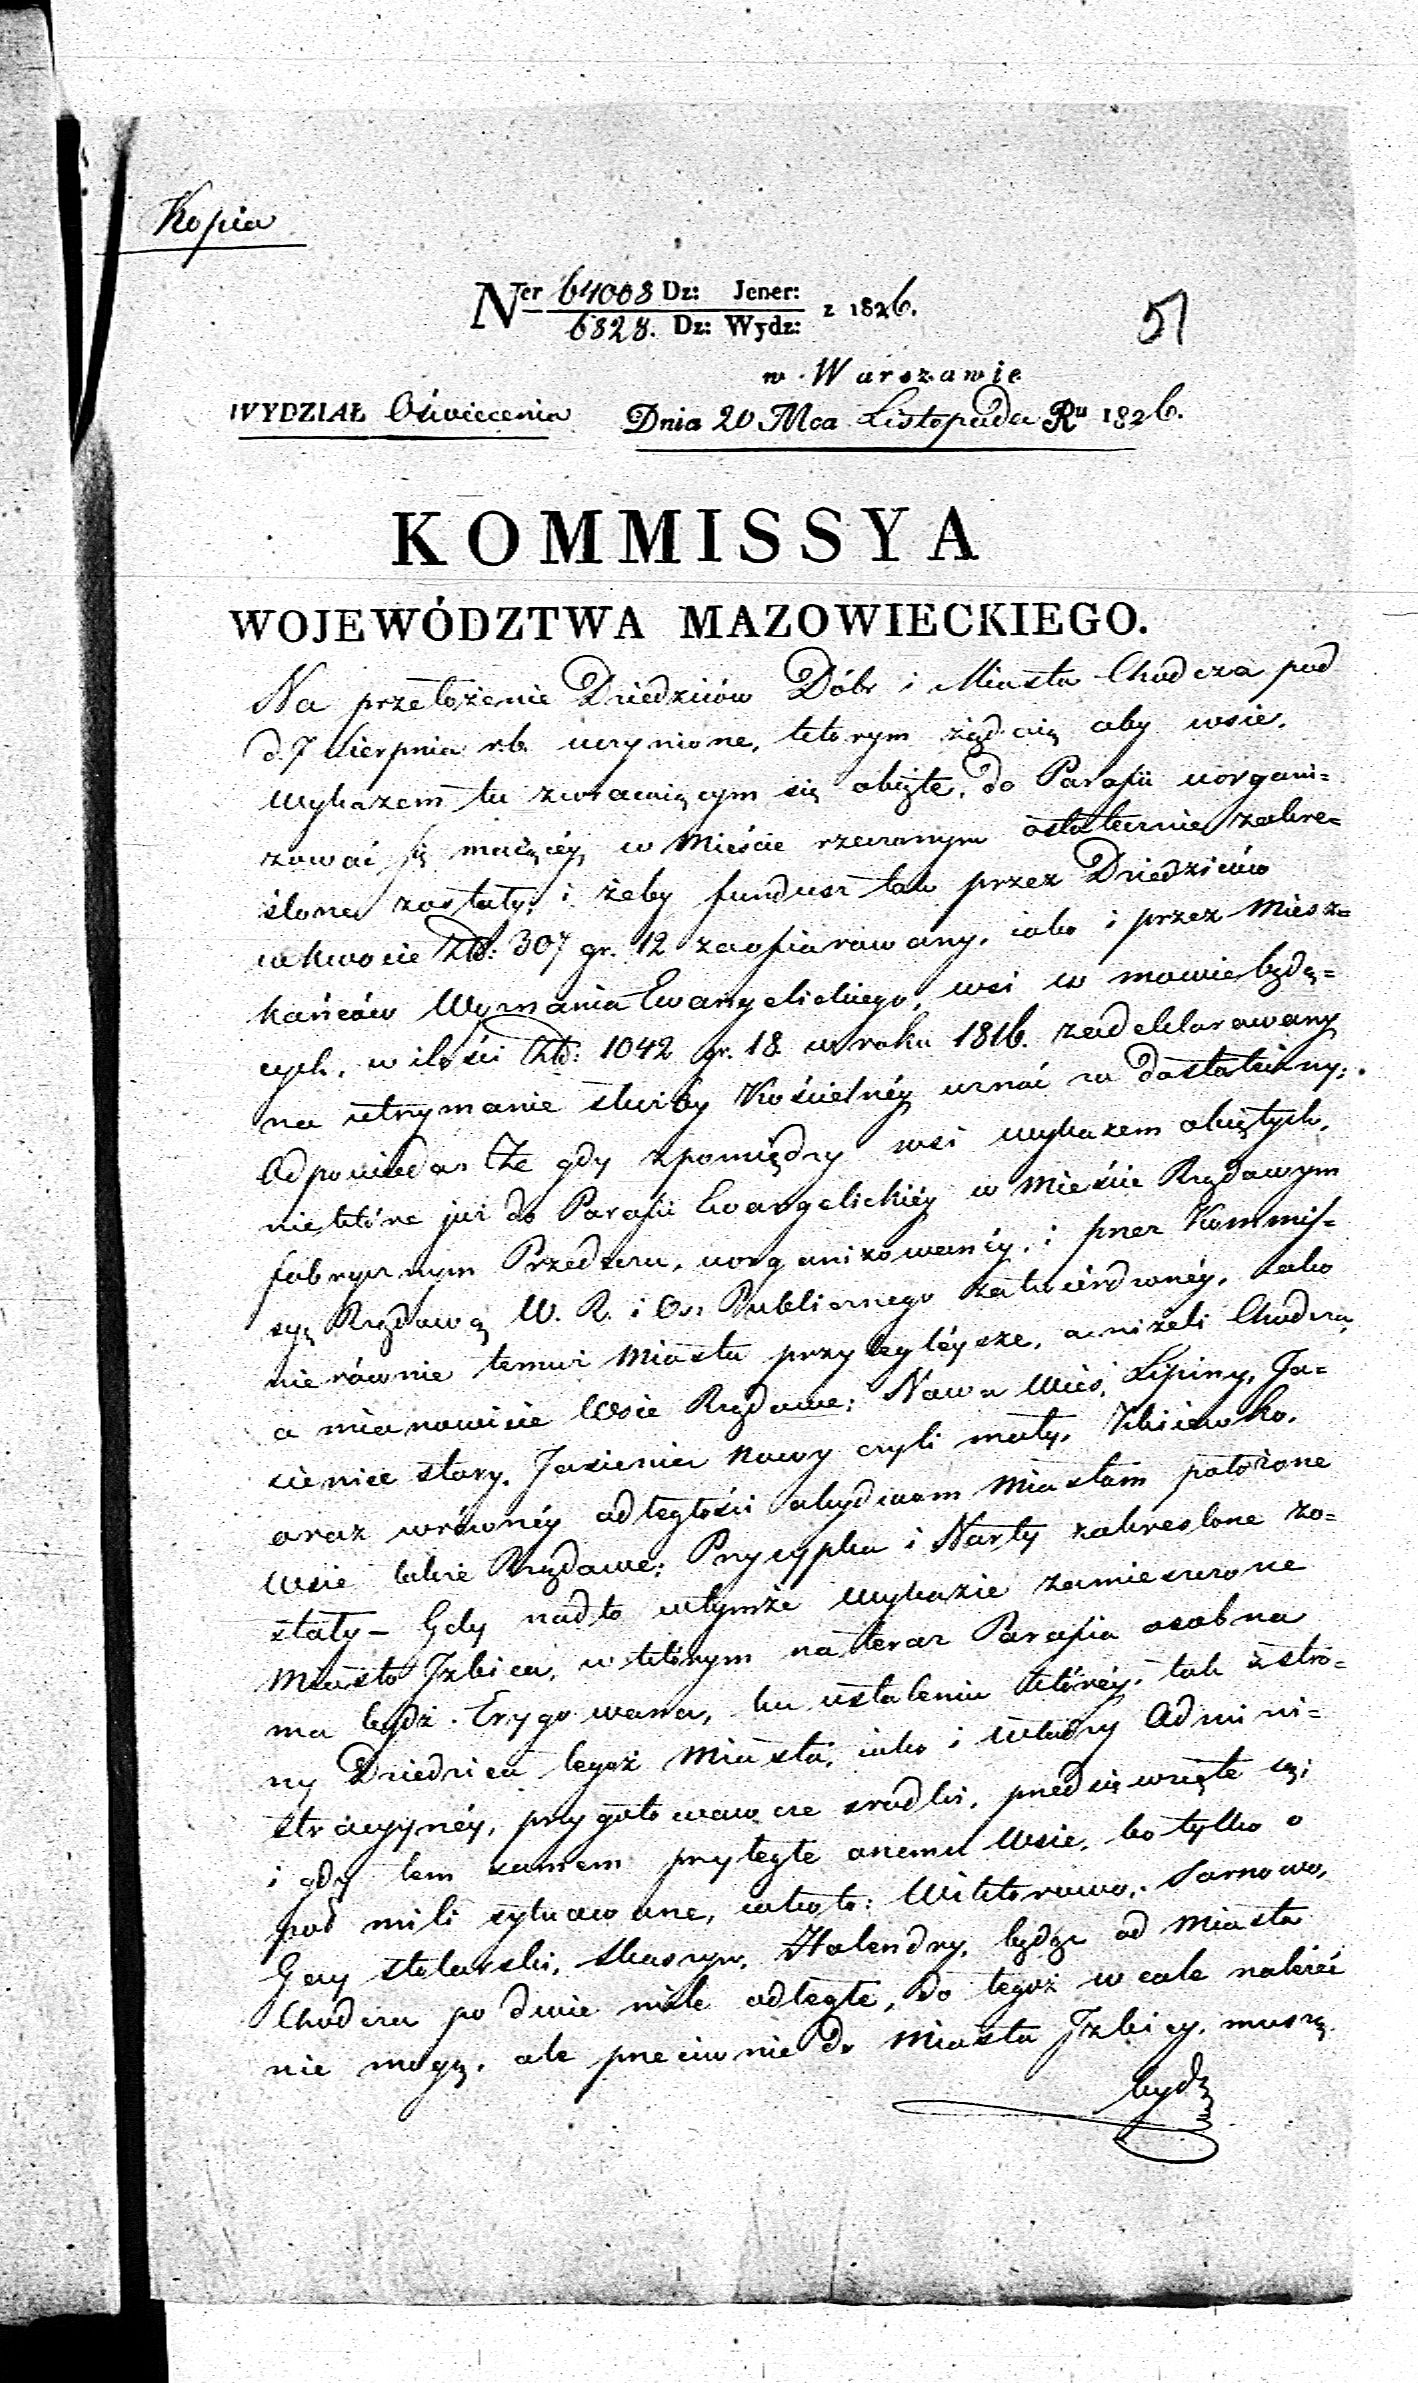 Kopia
Ner 64008 Dz: Jener: z 1826.
6828. Dz: Wydz:
51
w Warszawie
WYDZIAŁ Oświecenia Dnia 20 Mca Listopada Ru 1826.
KOMMISSYA
WOJEWÓDZTWA MAZOWIECKIEGO.
Na przełożenie Dziedziców Dóbr i Miasta Chodcza pod
d. 7 Sierpnia r.b. uczynione, którym żądaią aby wsie,
wykazem tu zwracaiącym się obięte, do Parafii uorgani-
zować się maiącéy w Mieście rzeczonym ostatecznie zakre-
ślone zostały; i żeby fundusz tak przez Dziedziców
w kwocie Złt: 307 gr. 12 zaofiarowany, iako i przez Miesz-
kańców Wyznania Ewangelickiego, wsi w mowie będą-
cych, w ilości Złt: 1042 gr. 18 w roku 1816. zadeklarowany
na utrzymanie służby Kościelnéy uznać za dostateczny;
Odpowiada: Że gdy zpomiędzy wsi wykazem obiętych,
niektóre już do Parafii Ewangelickiéy w Mieście Rządowym
fabrycznym Przedeczu, uorganizowanéy, i przez Kommis-
syą Rządową W. R. i Oś. Publicznego zatwierdzonéy, iako
nierównie temuż Miastu przylegléysze, aniżeli Chodczu,
a mianowicie Wsie Rządowe: Nowa Wieś, Lipiny, Ja-
sieniec stary, Jasieniec nowy czyli mały, Zbiiewko,
oraz w równéy odległości obydwom Miastom położone
Wsie także Rządowe: Przycypka i Narty zakreślone zo-
stały – Gdy nadto w tymże wykazie zamieszczone
Miasto Jzbica, w którym na teraz Parafia osobna
ma bydź Erygowana, ku ustaleniu któréy, tak z stro-
ny Dziedzica tegoż Miasta, iako i Władzy Admini-
stracyynéy, przygotowawcze srodki, przedsięwzięte są;
i gdy tem samem przyległe onemu Wsie, bo tylko o
pół mili sytuowane, iakoto: Wiktorowo, Sarnowo,
Gay stolarski, Skaszyn, Halendry, będąc od Miasta
Chodcza po dwie mile odległe, do tegoż wcale należeć
nie mogą, ale przeciwnie do Miasta Jzbicy, muszą
bydź